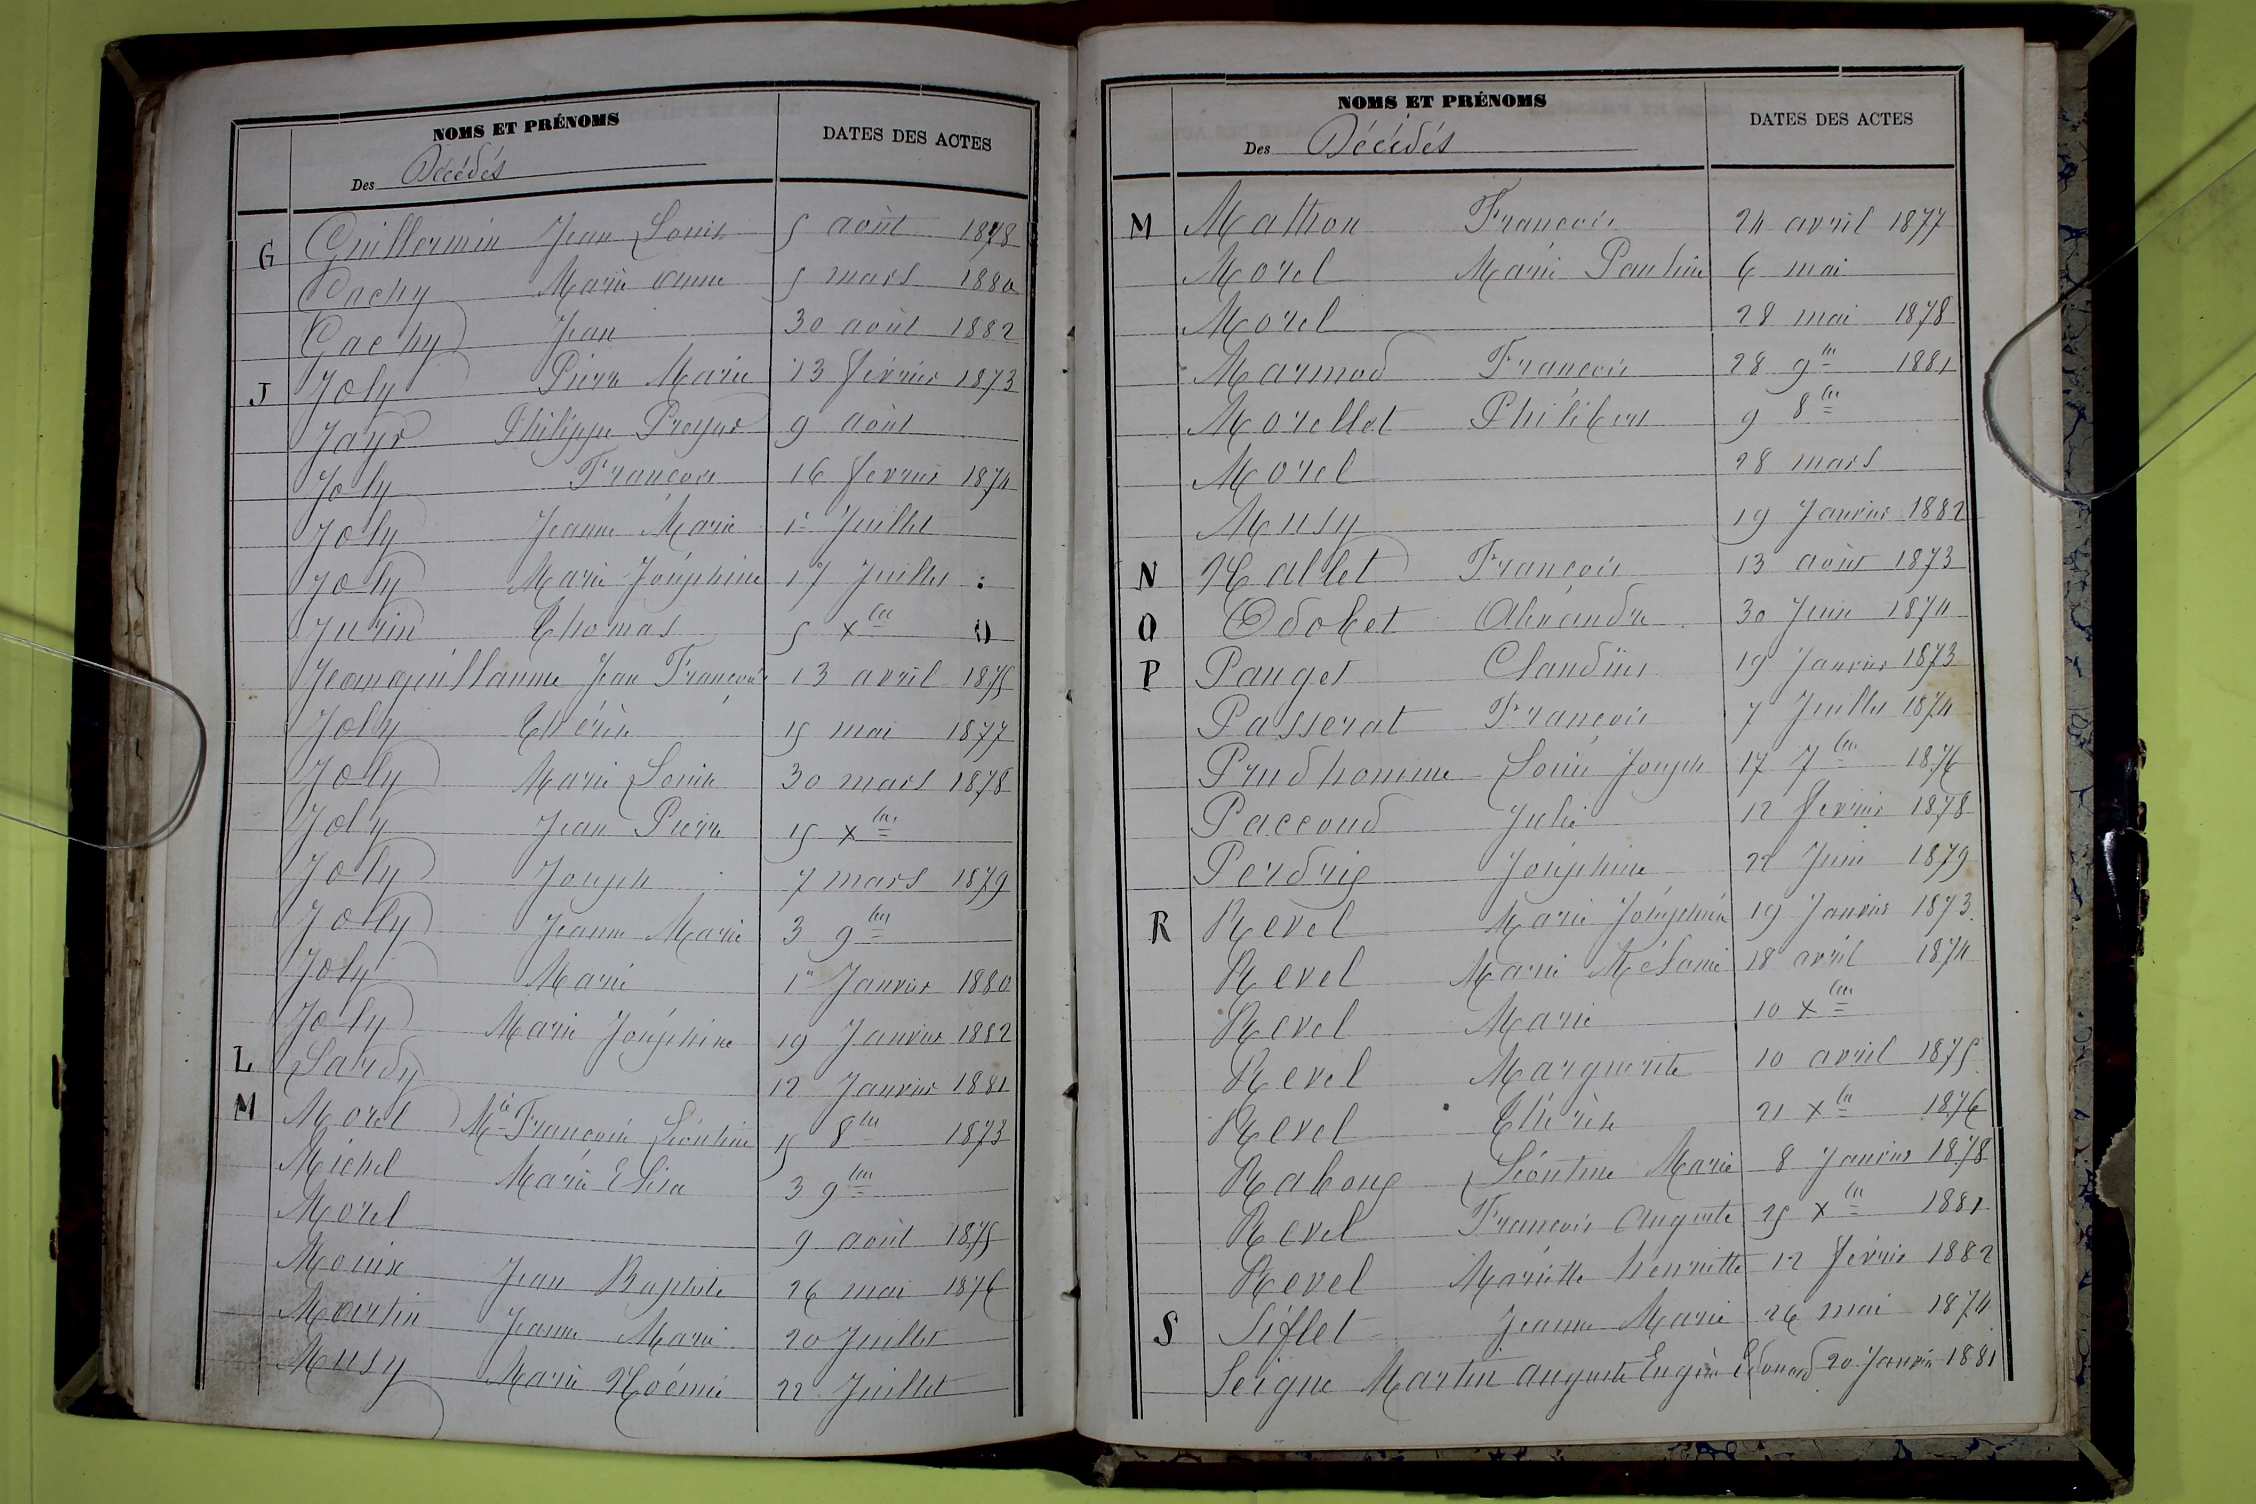 NOMS ET PRÉNOMS
DATES DES ACTES
Des Décédés
G Guillermin Jean Louis 5 août 1878
Gachy Marie Anne 5 mars 1880
Gachy Jean 30 août 1882
J Joly Pierre Marie 13 février 1873
Jayr Philippe 9 août
Joly François 16 fevrier 1874
Joly Jeanne Marie 1er Juillet
Joly Marie Joséphine 17 Juillet
Jurin Thomas 5 xbre
Jeanguillaume Jean François 13 avril 1875
Joly Thérèse 15 mai 1877
Joly Marie Louise 30 mars 1878
Joly Jean Pierre 15 xbre
Joly Joseph 7 mars 1879
Joly Jeanne Marie 3 9bre
Joly Marie 1er Janvier 1880
Joly Marie Joséphine 19 Janvier 1882
L Lardy 12 Janvier 1881
M Morel Mie Françoise Léontine 15 8bre 1873
Michel Marie Elisa 3 9bre
Morel 9 août 1875
Mouix Jean Baptiste 26 mai 1876
Martin Jeanne Marie 20 Juillet
Musy Marie Noémie 22 Juillet
NOMS ET PRÉNOMS
DATES DES ACTES
Des Décédés
M Mathon François 24 avril 1877
Morel Marie Pauline 6 mai
Morel 28 mai 1878
Marmod François 28 9bre 1881
Morellet Philibert 9 8bre
Morel 28 mars
Musy 19 Janvier 1882
N Nallet François 13 août 1873
O Odobet Alexandre 30 Juin 1874
P Panget Claudius 19 Janvier 1873
Passerat François 7 Juillet 1874
Prudhomme Louis Joseph 17 7bre 1876
Paccoud Julie 12 fevrier 1878
Perdrix Joséphine 22 Juin 1879
R Revel Marie Joséphine 19 Janvier 1873
Revel Marie Mélanie 18 avril 1874
Revel Marie 10 xbre
Revel Marguerite 10 avril 1875
Revel Thérèse 21 xbre 1876
Raboux Léontine Marie 8 Janvier 1878
Revel François Auguste 25 xbre 1881
Revel Mariette henriette 12 février 1882
S Siflet Jeanne Marie 26 mai 1874
Seigne Martin Auguste Eugène Edouard 20 Janvier 1881